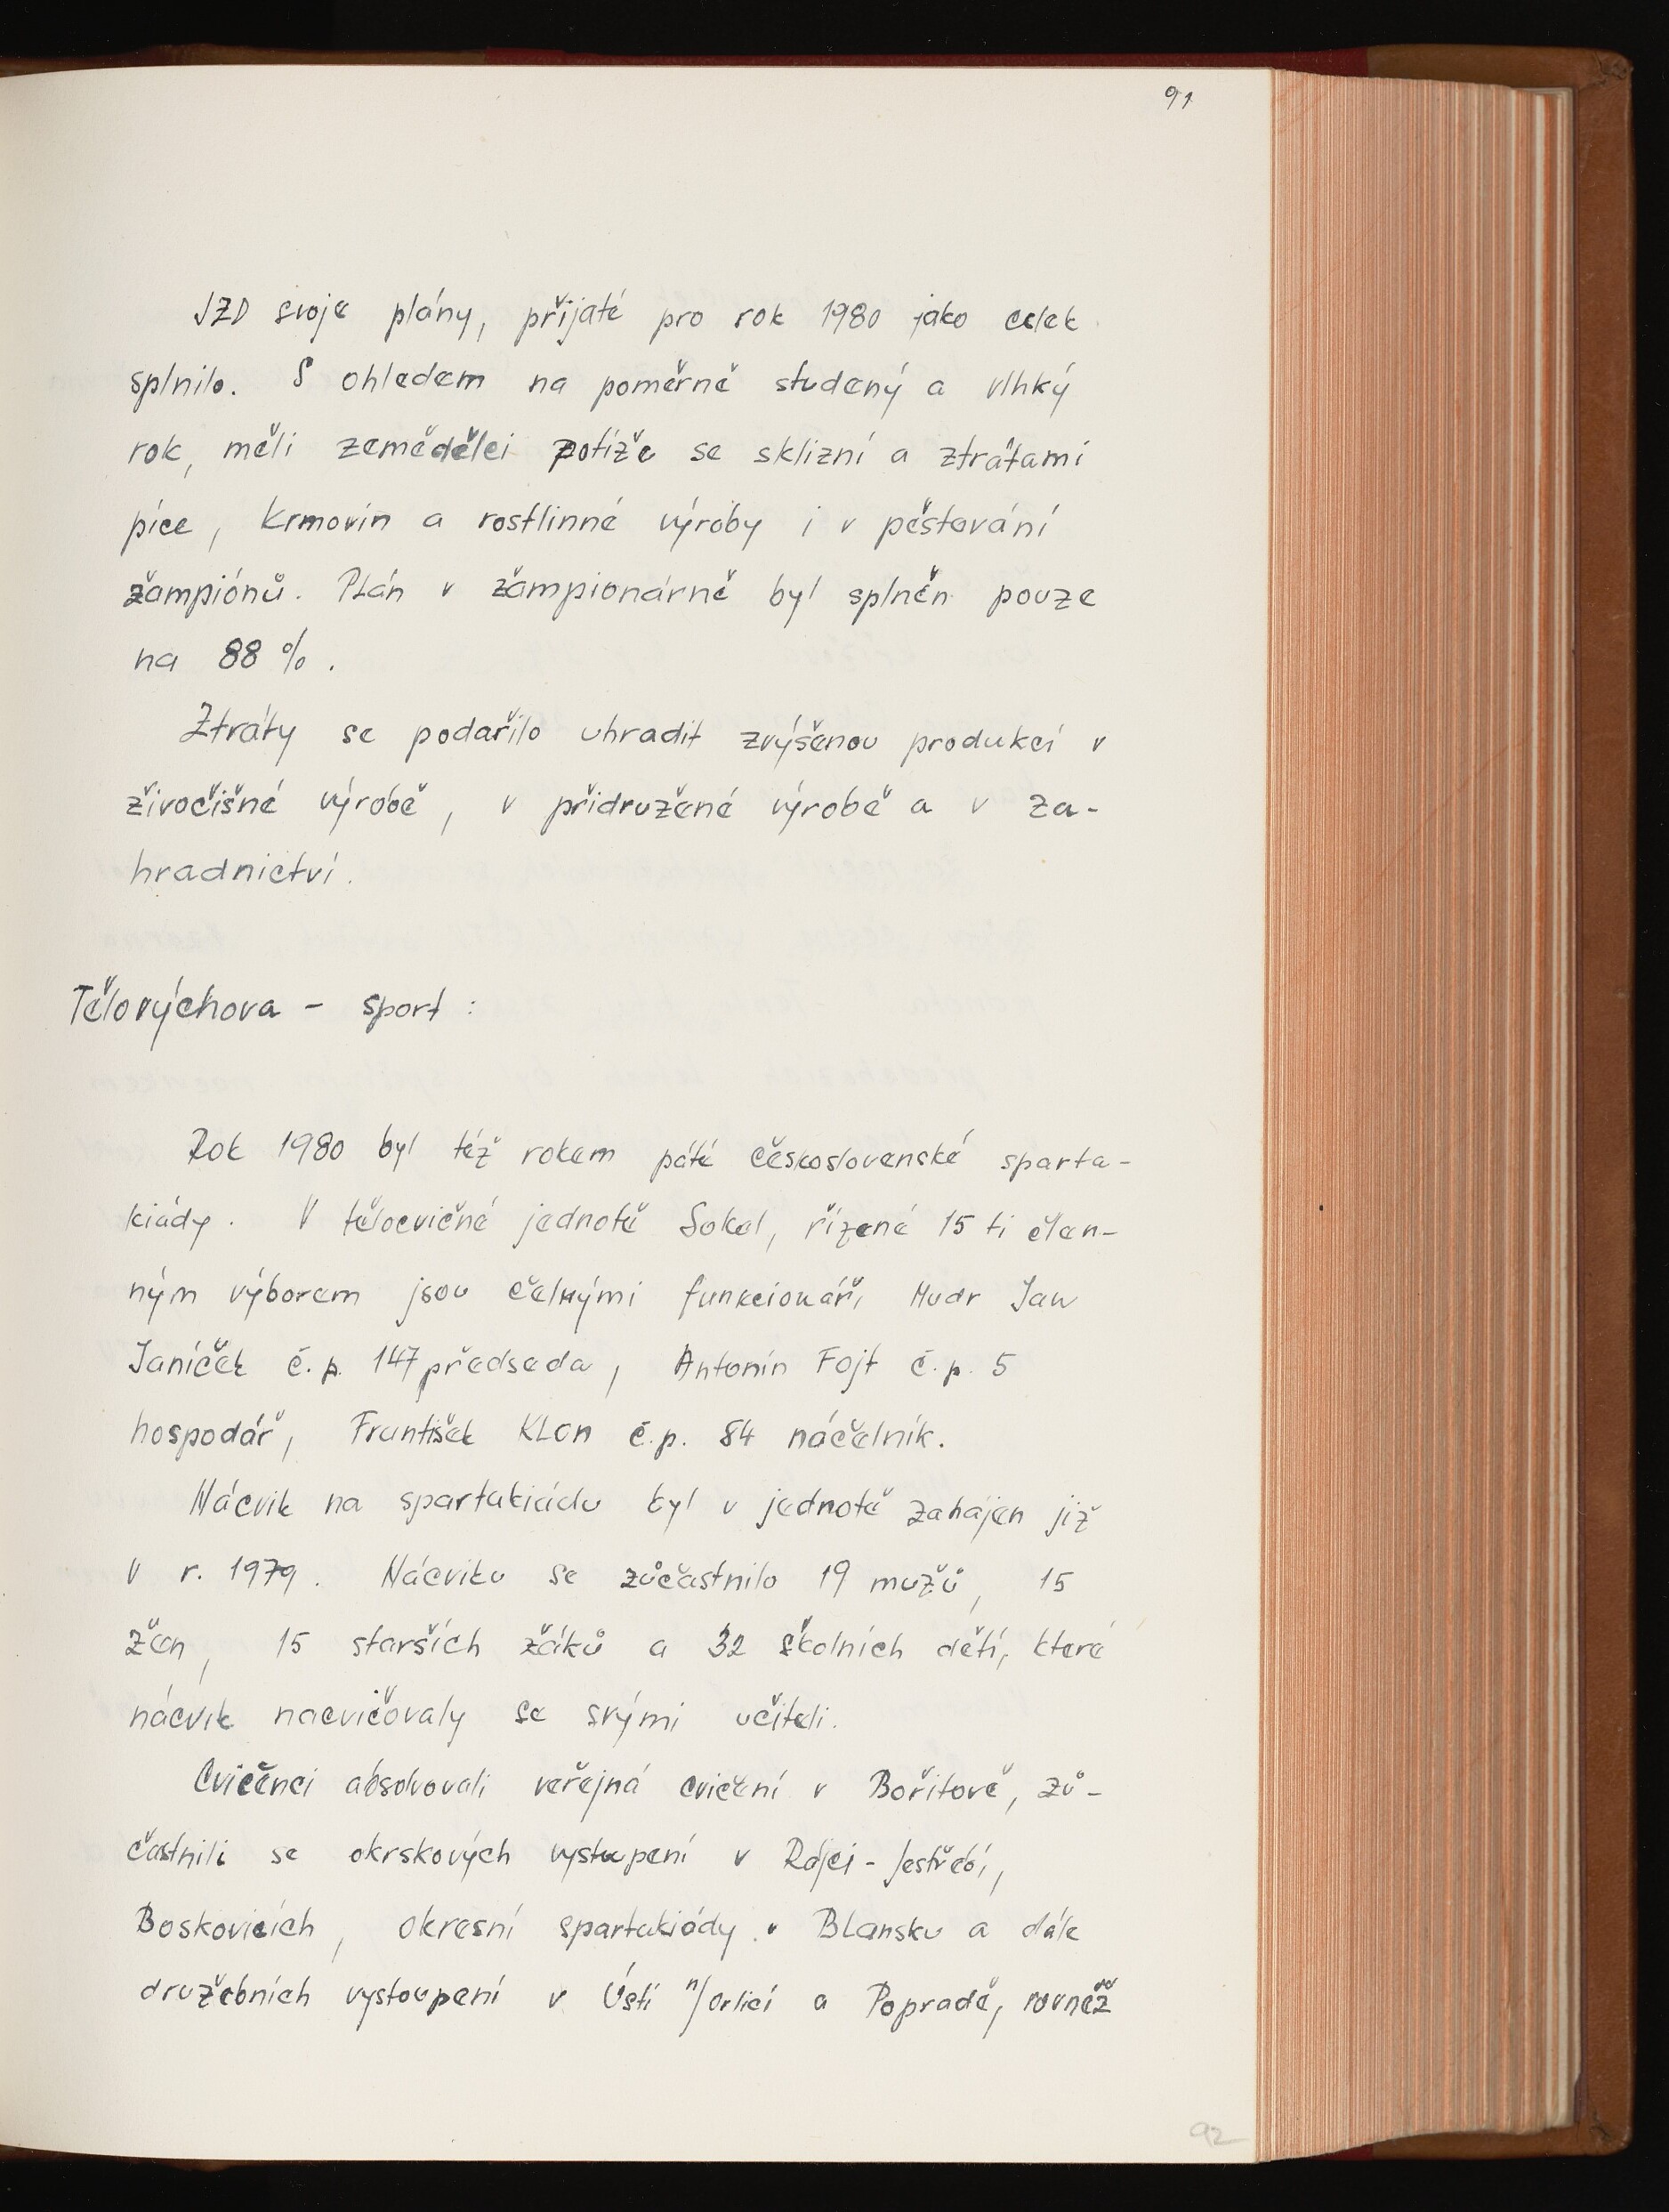 91
JZD svoje plány, přijaté pro rok 1980 jako celek
splnilo. S ohledem na poměrně studený a vlhký
rok, měli zemědělci potíže se sklizní a ztrátami
píce, krmovin a rostlinné výroby i v pěstování
žampiónů. Plán v žampionárně byl splněn pouze
na 88 %.
Ztráty se podařilo uhradit zvýšenou produkcí v
živočišné výrobě, v přidružené výrobě a v za-
hradnictví.
Tělovýchova - sport :
Rok 1980 byl též rokem páté československé sparta-
kiády. V tělocvičné jednotě Sokol, řízené 15 ti člen-
ným výborem jsou čelnými funkcionáři Mudr Jan
Janíček č.p. 147 předseda, Antonín Fojt č.p. 5
hospodář, František Klon č.p. 84 náčelník.
Nácvik na spartakiádu byl v jednotě zahájen již
v r. 1979. Nácviku se zůčastnilo 19 mužů, 15
žen, 15 starších žáků a 32 školních dětí, které
nácvik nacvičovaly se svými učiteli.
Cvičenci absolvovali veřejná cvičení v Bořitově, zů-
častnili se okrskových vystoupení v Rájci - Jestřebí,
Boskovicích, okresní spartakiády v Blansku a dále
družebních vystoupení v Ústí n/Orlicí a Popradě, rovněž
92